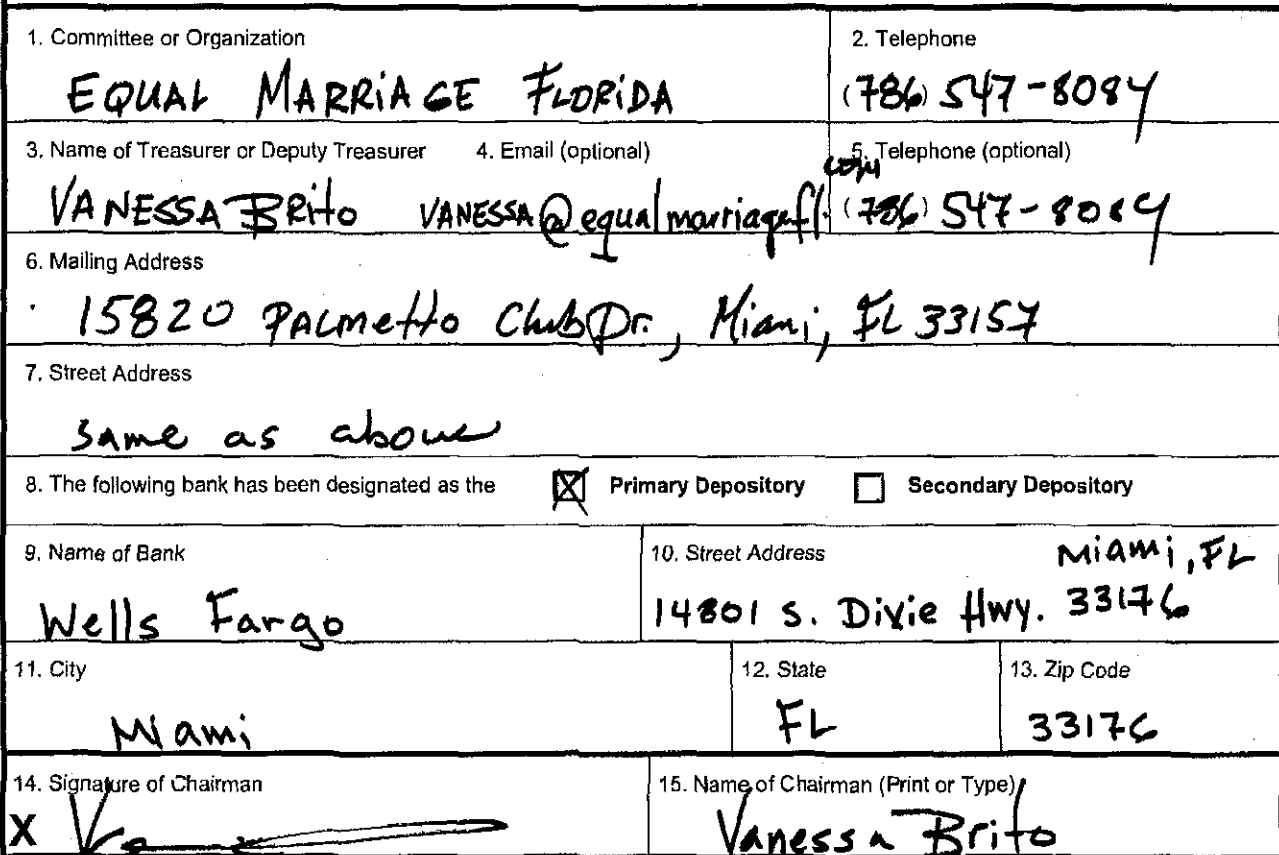 1. Committee or Organization
EQUAL MARRIAGE FLORIDA
2. Telephone
(786) 547-8084
3. Name of Treasurer or Deputy Treasurer
VANESSA BRito
4. Email (optional)
VANESSA@equalmarriagefl.com
5. Telephone (optional)
(786) 547-8084
6. Mailing Address
15820 PALmetto Club Dr., Miami, FL 33157
7. Street Address
same as above
8. The following bank has been designated as the X Primary Depository Secondary Depository
9. Name of Bank
Wells Fargo
10. Street Address
Miami, FL
14801 S. Dixie Hwy. 33176
11. City
Miami
12. State
FL
13. Zip Code
33176
14. Signature of Chairman
X
15. Name of Chairman (Print or Type)
Vanessa Brito